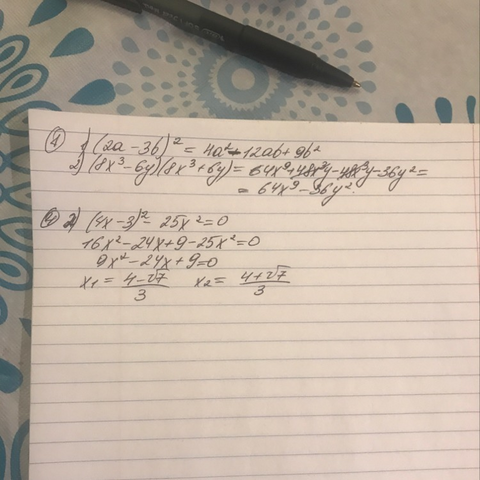 ① 1) (2a - 3b)² = 4a² - 12ab + 9b²
2) (8x³ - 6y)(8x³ + 6y) = 64x⁹ + 48x³y - 48x³y - 36y² =
= 64x⁹ - 36y².
④ 2) (4x - 3)² - 25x² = 0
16x² - 24x + 9 - 25x² = 0
9x² - 24x + 9 = 0
x₁ = (4 - √7)/3 x₂ = (4 + √7)/3